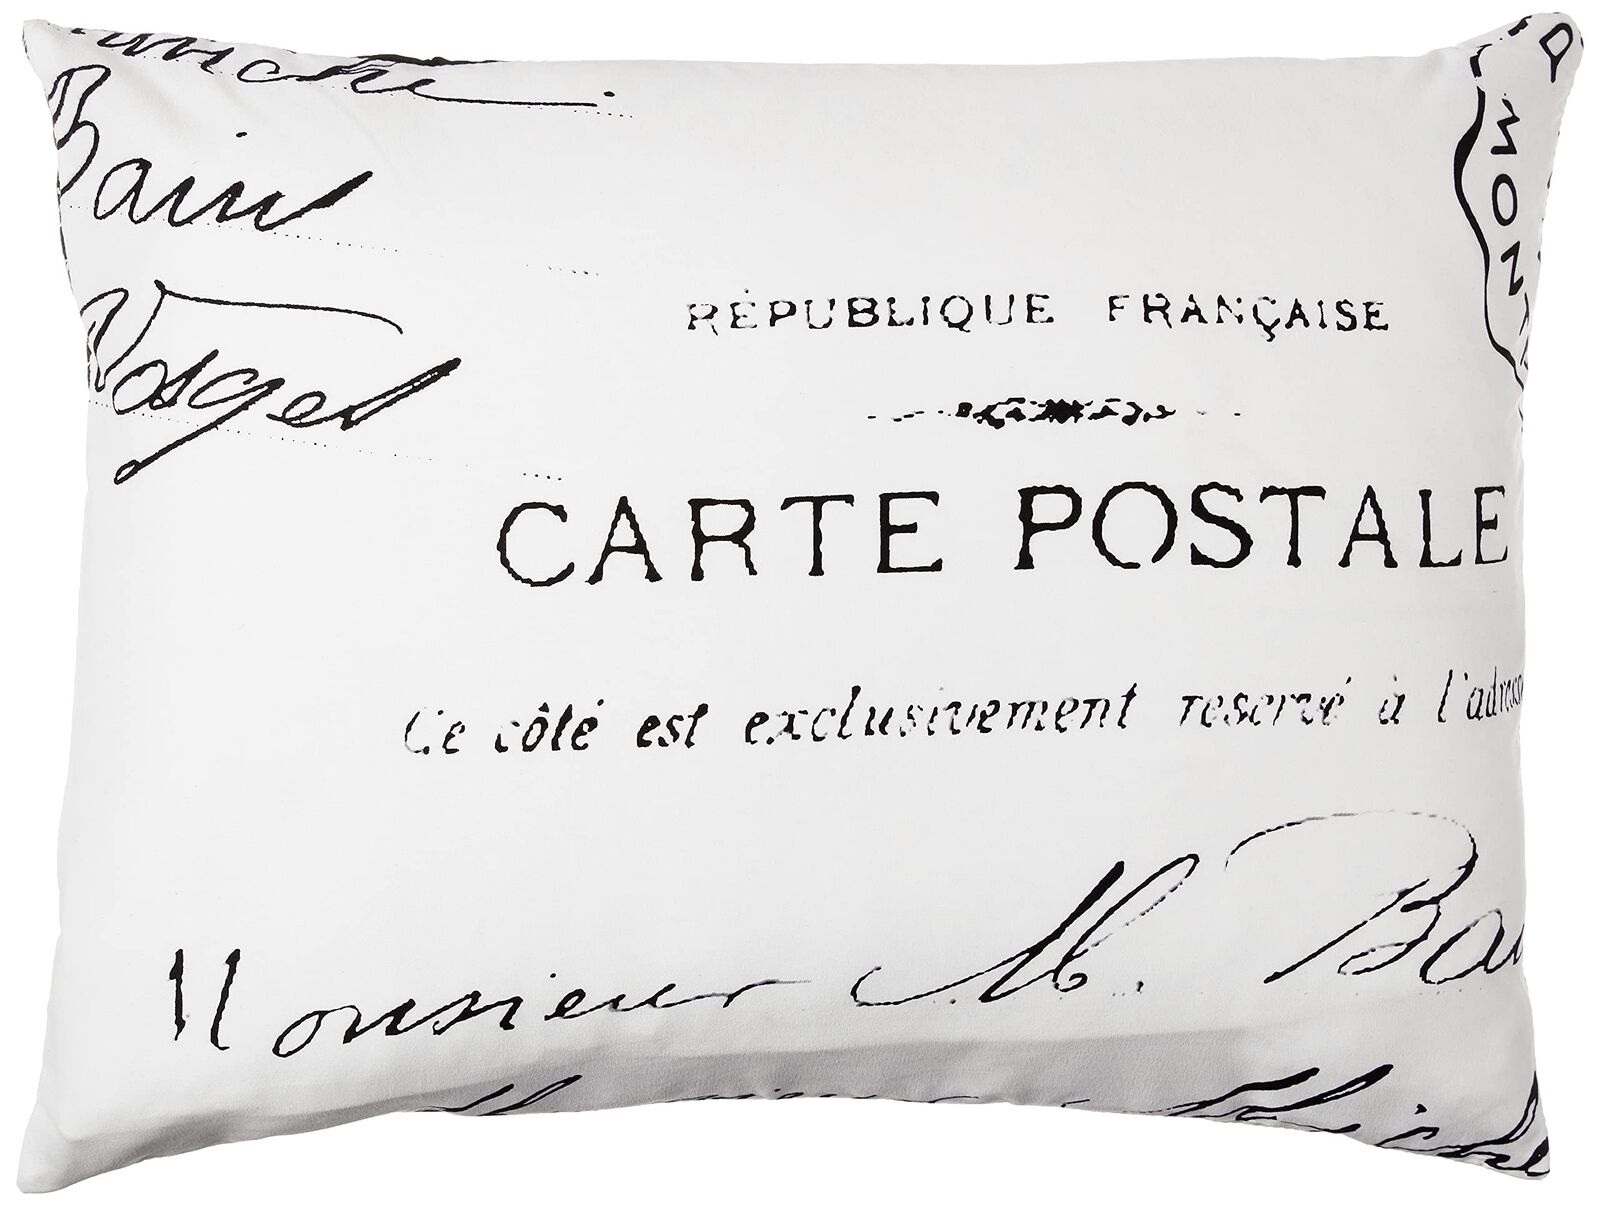 Bains
Vosges
MONT
RÉPUBLIQUE FRANÇAISE
CARTE POSTALE
Ce côté est exclusivement reservé à l'adresse
Monsieur M. Ba